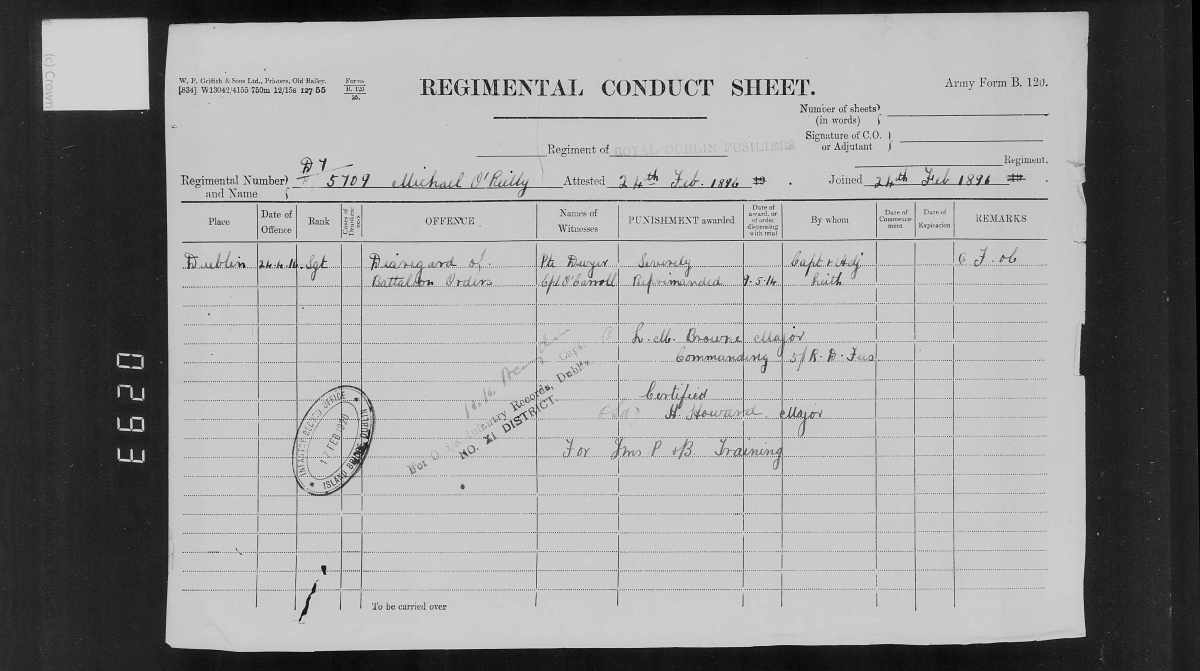 (c) Crown
W. P. Griffith & Sons Ltd., Printers, Old Bailey.
[834] W13042/4155 750m 12/15s 127 55
Forms
B. 120
REGIMENTAL CONDUCT SHEET.
Army Form B. 120.
Number of sheets
(in words)
Signature of C.O.
or Adjutant
Regiment of ROYAL DUBLIN FUSILIERS
Regiment.
Regimental Number
and Name
5709 Michael O'Reilly Attested 24th Feb. 1896 19 . Joined 24th Feb 1896
Place Date of Offence Rank Cases of Drunkenness OFFENCE Names of Witnesses PUNISHMENT awarded Date of award, or of order dispensing with trial By whom Date of Commencement Date of Expiration REMARKS
Dublin 24.4.16. Sgt Disregard of Pte Dwyer Severely Capt & Adj
Battalion Orders Cpl O'Carroll Reprimanded Keith
L. M. Browne Major
Commanding 5/ R. D. Fus.
Certified
H Howard. Major
For
Training
Infantry Records, Dublin
NO. XI DISTRICT.
INFANTRY RECORD OFFICE
17 FEB 1920
ISLAND BRIDGE DUBLIN
To be carried over
0293